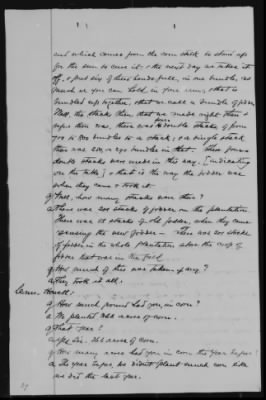 and which comes from the corn stalk to stand up
for the sun to cure it & the next day we take it
off, & put six of these hands full, in one bundle, as
much as you can hold in four arms & that is
bundled up together, & that we call a bundle of fodder.
Well, the stacks then, that we made right there &
there was double stacks of from
700 to 800 bundles to a stack; & a single stack
there was 200 & 250 bundles in that. These four
double stacks were made in this way. [indicating
on the table] & that is the way the fodder was
when they came & took it.
Q Well, how many stacks were there?
A There was 200 stacks of fodder on the plantation.
There was 15 stacks of old fodder, when they came
the new fodder— There was 200 stacks
of fodder in the whole plantation, above the crop of
fodder that was in the field.
Q How much of this was taken, if any?
A They took it all.
Q How much ground had you in corn?
A We planted 266 acres of corn.
Q That year?
A Yes Sir. 266 acres of corn.
Q How many acres had you in corn the year before?
A The year before, we didn't plant much corn like
we did the last year.